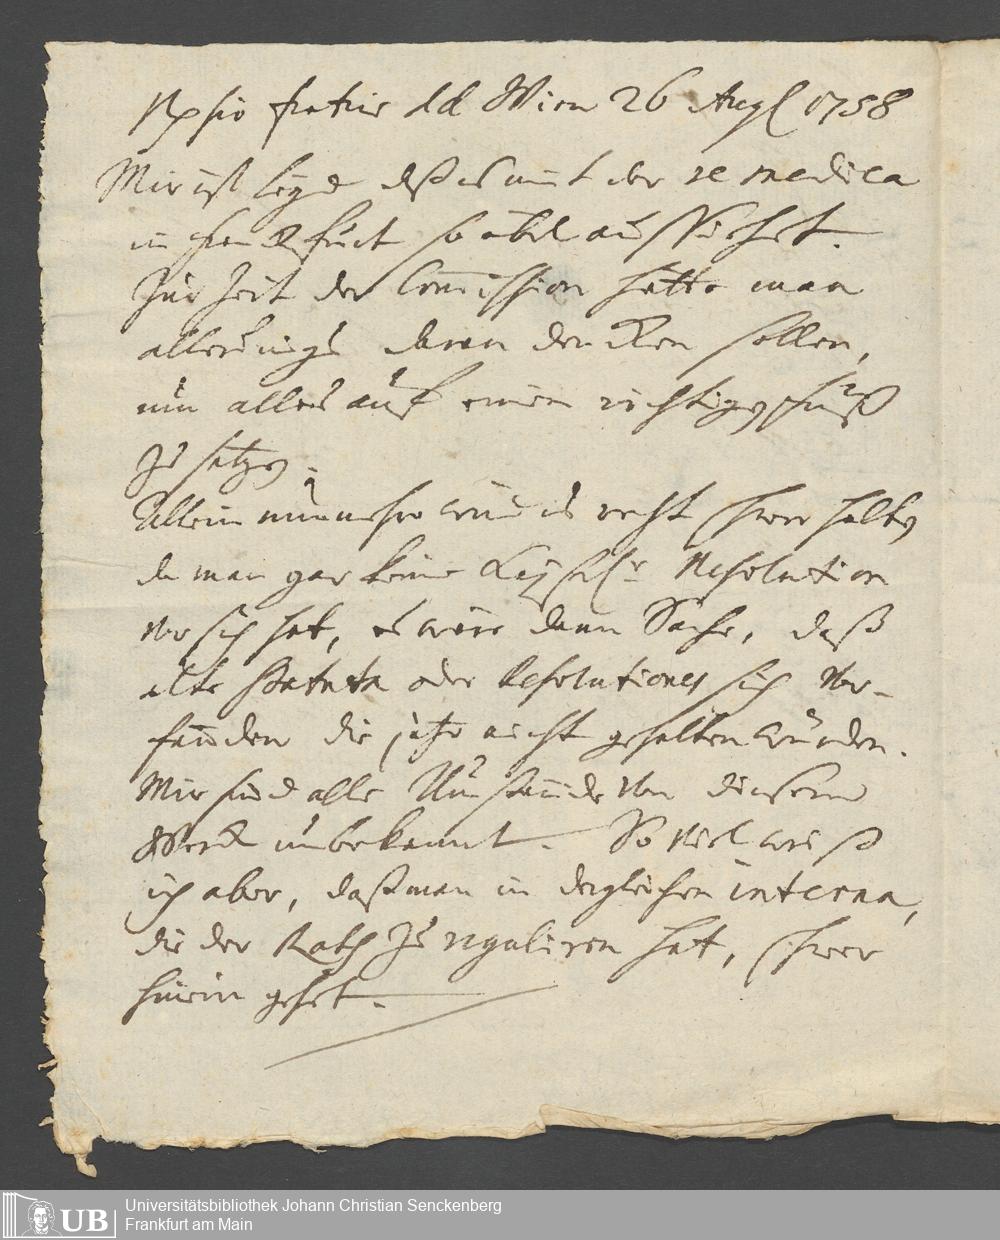 Rpsio fratris dd Wien 26 Aug 1758
Mir ist leyd daß es mit der re medica
in Franckfurt so übel aussiehet.
Zur Zeit der Commission hätte man
allerdings daran dencken sollen,
um alles auf einen richtigen Fuß
zu setzen.
Allein nunmehro wird es recht schwer halten
da man gar keine Kayserl. Resolution
vor sich hat, es wäre dann Sache, daß
alte statuta oder Resolutiones sich vor-
fänden die jetzo nicht gehalten würden.
Mir sind alle Umstände von diesem
Werck unbekannt. So viel weiß
ich aber, daß man in dergleichen interna,
die der Rath zu reguliren hat, schwer
hinein gehet.
Universitätsbibliothek Johann Christian Senckenberg
Frankfurt am Main
UB